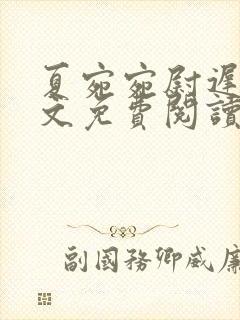 夏宛宛尉遲
文免費閱讀
副國務卿威廉